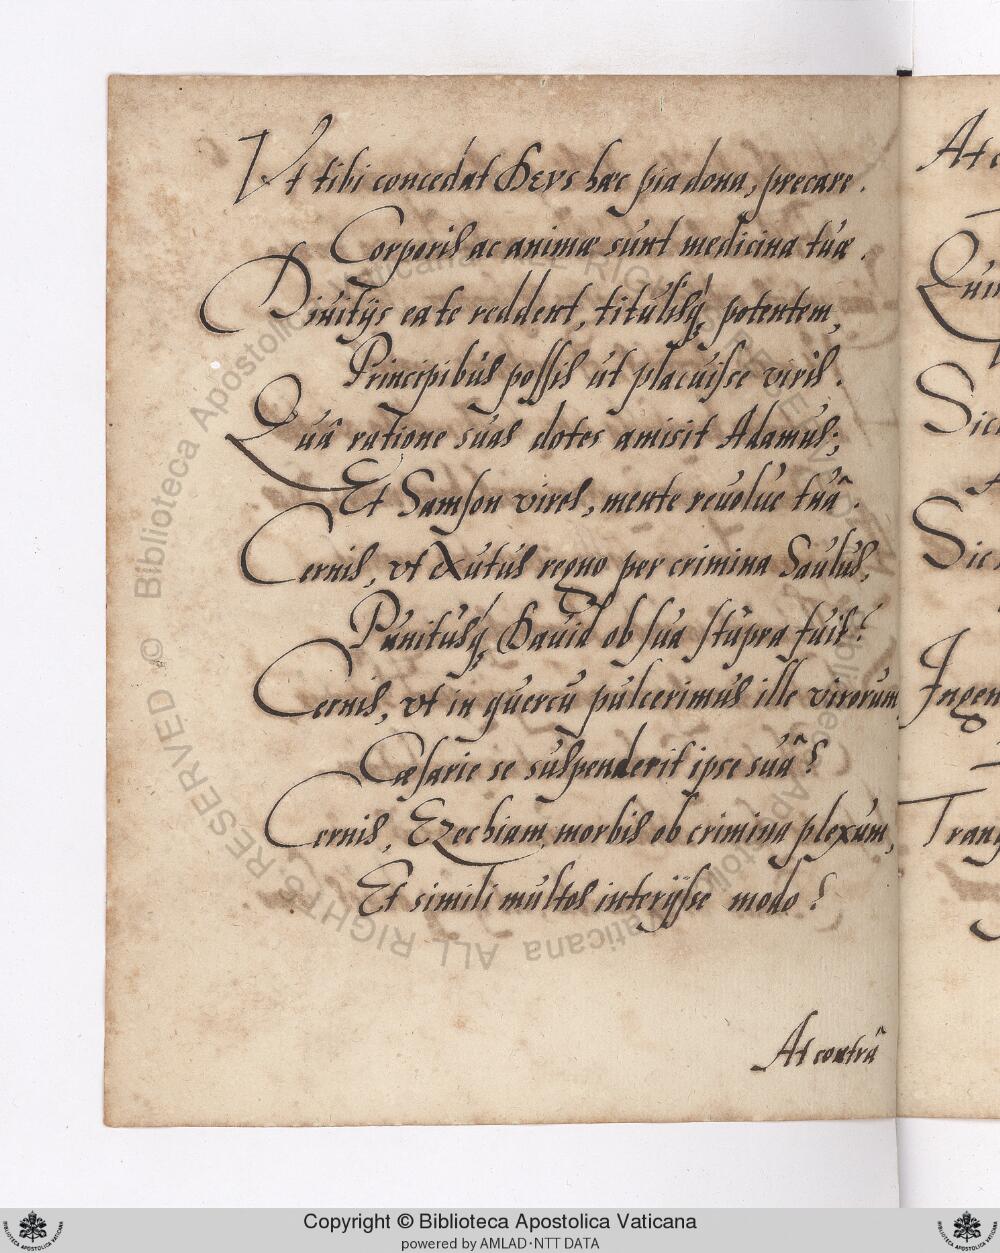 Vt tibi concedat Deus hæc pia dona, precare.
Corporis ac animæ sunt medicina tuæ.
Diuitijs ea te reddent, titulisq; potentem,
Principibus possis ut placuisse viris.
Quâ ratione suas dotes amisit Adamus;
Et Samson vires, mente reuolue tuâ.
Cernis, vt exutus regno per crimina Saulus,
Punitusq; Dauid ob sua stupra fuit?
Cernis, vt in quercu pulcerimus ille virorum
Cæsarie se suspenderit ipse suâ?
Cernis, Ezechiam morbis ob crimina plexum,
Et simili multos interijsse modo?
At contrâ
At c
Qui
Sic
Sic
Ingen
Trans
© Biblioteca Apostolica Vaticana ALL RIGHTS RESERVED
Copyright © Biblioteca Apostolica Vaticana
powered by AMLAD·NTT DATA